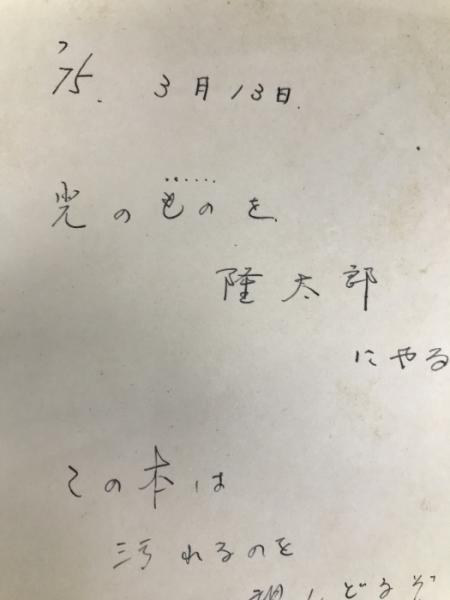 '75. 3月13日.
光のものを
隆太郎
にやる
この本は
汚れるのを